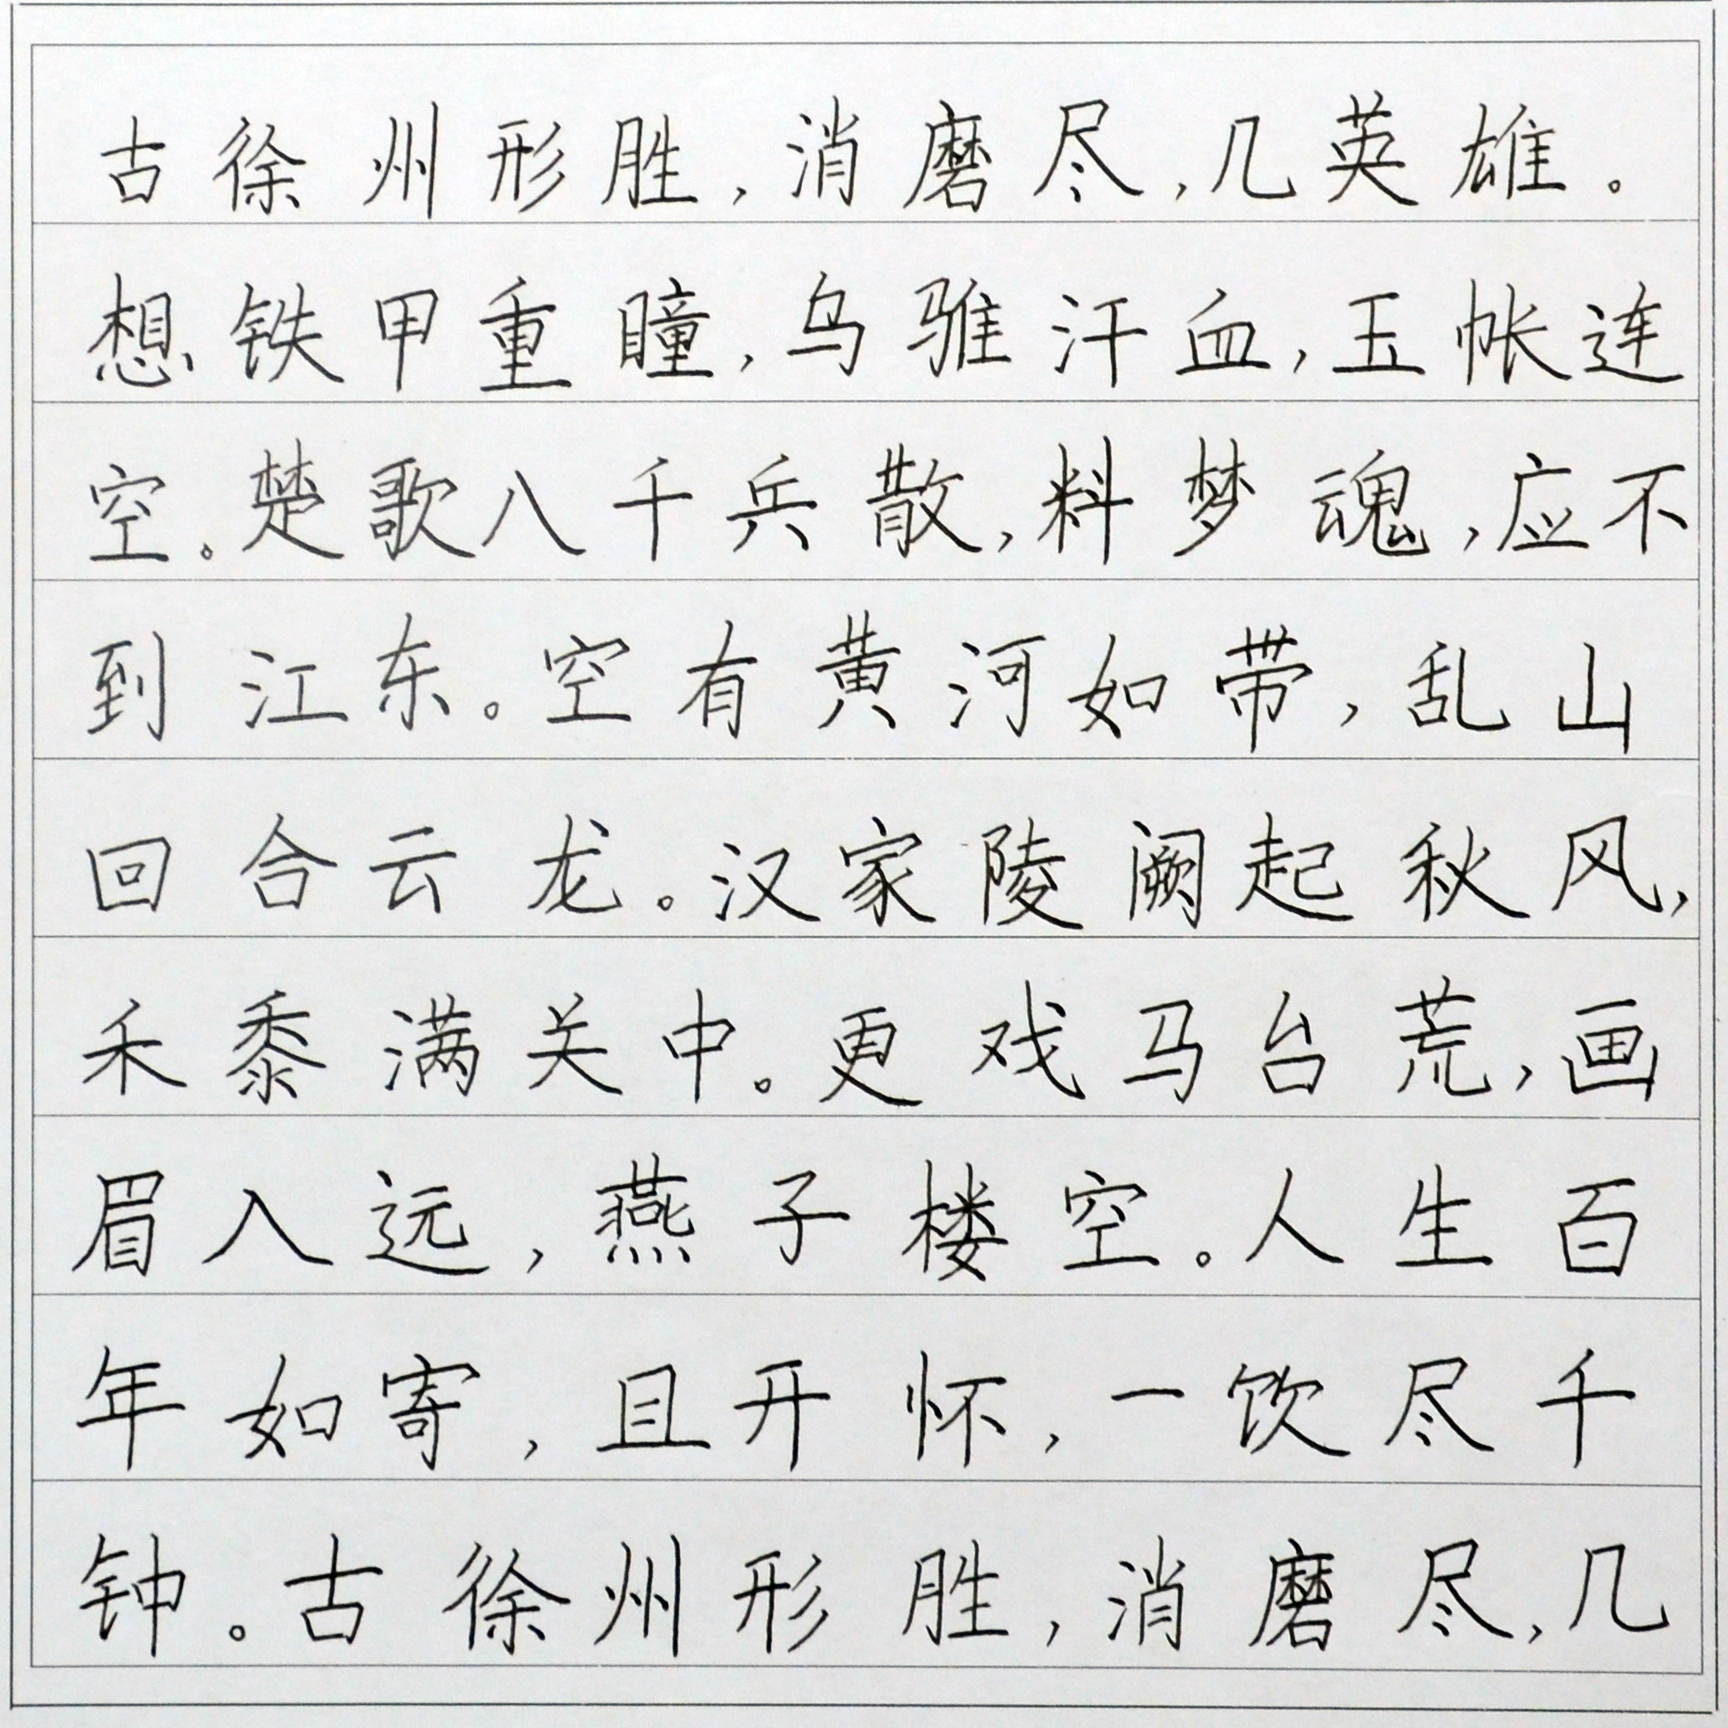 古徐州形胜，消磨尽，几英雄。
想铁甲重瞳，乌骓汗血，玉帐连
空。楚歌八千兵散，料梦魂，应不
到江东。空有黄河如带，乱山
回合云龙。汉家陵阙起秋风，
禾黍满关中。更戏马台荒，画
眉入远，燕子楼空。人生百
年如寄，且开怀，一饮尽千
钟。古徐州形胜，消磨尽，几